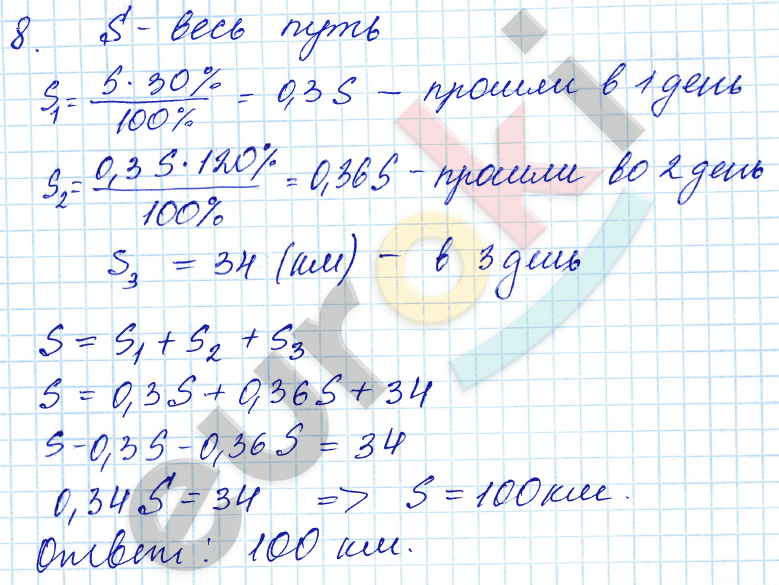 8. S - весь путь
S₁ = S · 30% / 100% = 0,3 S — прошли в 1 день
S₂ = 0,3 S · 120% / 100% = 0,36 S - прошли во 2 день
S₃ = 34 (км) — в 3 день
S = S₁ + S₂ + S₃
S = 0,3 S + 0,36 S + 34
S - 0,3 S - 0,36 S = 34
0,34 S = 34 => S = 100 км.
Ответ: 100 км.
euroki